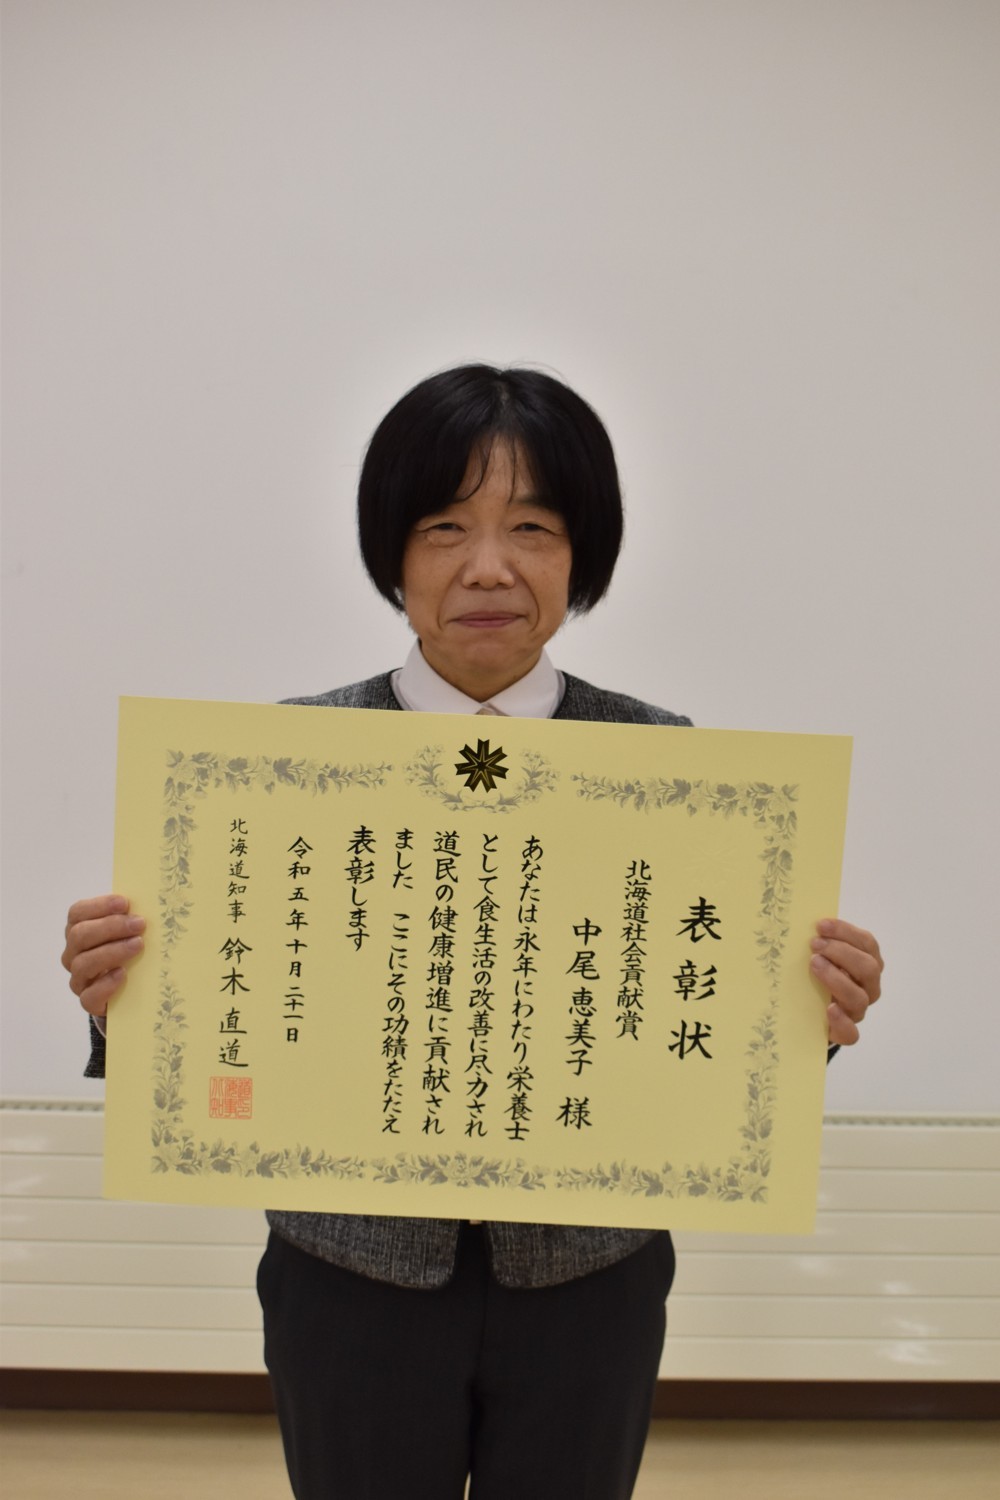 表彰状
北海道社会貢献賞
中尾恵美子 様
あなたは永年にわたり栄養士
として食生活の改善に尽力され
道民の健康増進に貢献され
ました ここにその功績をたたえ
表彰します
令和五年十月二十一日
北海道知事 鈴木直道